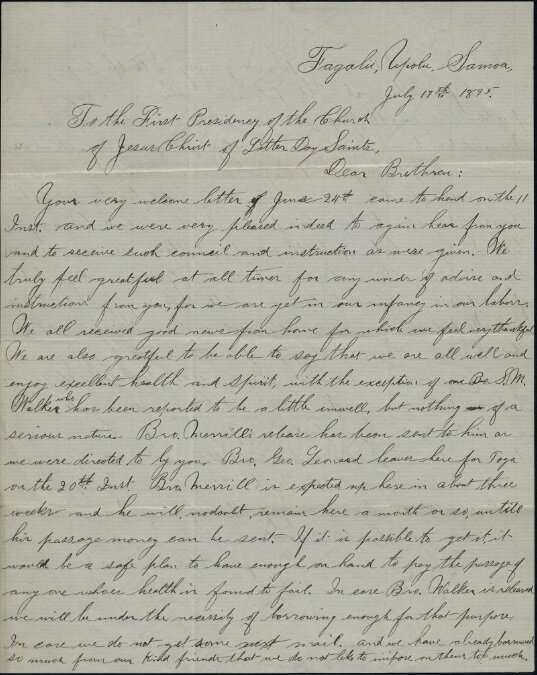 Fagalii, Upolu, Samoa,
July 17th 1895.
To the First Presidency of the Church
of Jesus Christ of Latter Day Saints,
Dear Brethren:
Your very welcome letter of June 24th came to hand on the 11
Inst. and we were very pleased indeed to again hear from you
and to receive such council and instruction as were given. We
truly feel greatful at all times for any words of advise and
instructions from you, for we are yet in our infancy in our labors.
We all received good news from home for which we feel very thankful
We are also greatful to be able to say that we are all well and
enjoy excellent health and spirit, with the exception of Bro. S. M.
Walker who has been reported to be a little unwell, but nothing of a
serious nature. Bro. Merrill's release has been sent to him as
we were directed to by you. Bro. Geo. Leonard leaves here for Toga
on the 20th Inst Bro. Merrill is expected up here in about three
weeks and he will, no doubt, remain here a month or so, untill
his passage money can be sent. If it is possible to get it, it
would be a safe plan to have enough on hand to pay the passage of
any one whoes health is found to fail. In case Bro. Walker is released
we will be under the necessity of borrowing enough for that purpose
In case we do not get some next mail. and we have already borrowed
so much from our kind friends that we do not like to impose on them too much.